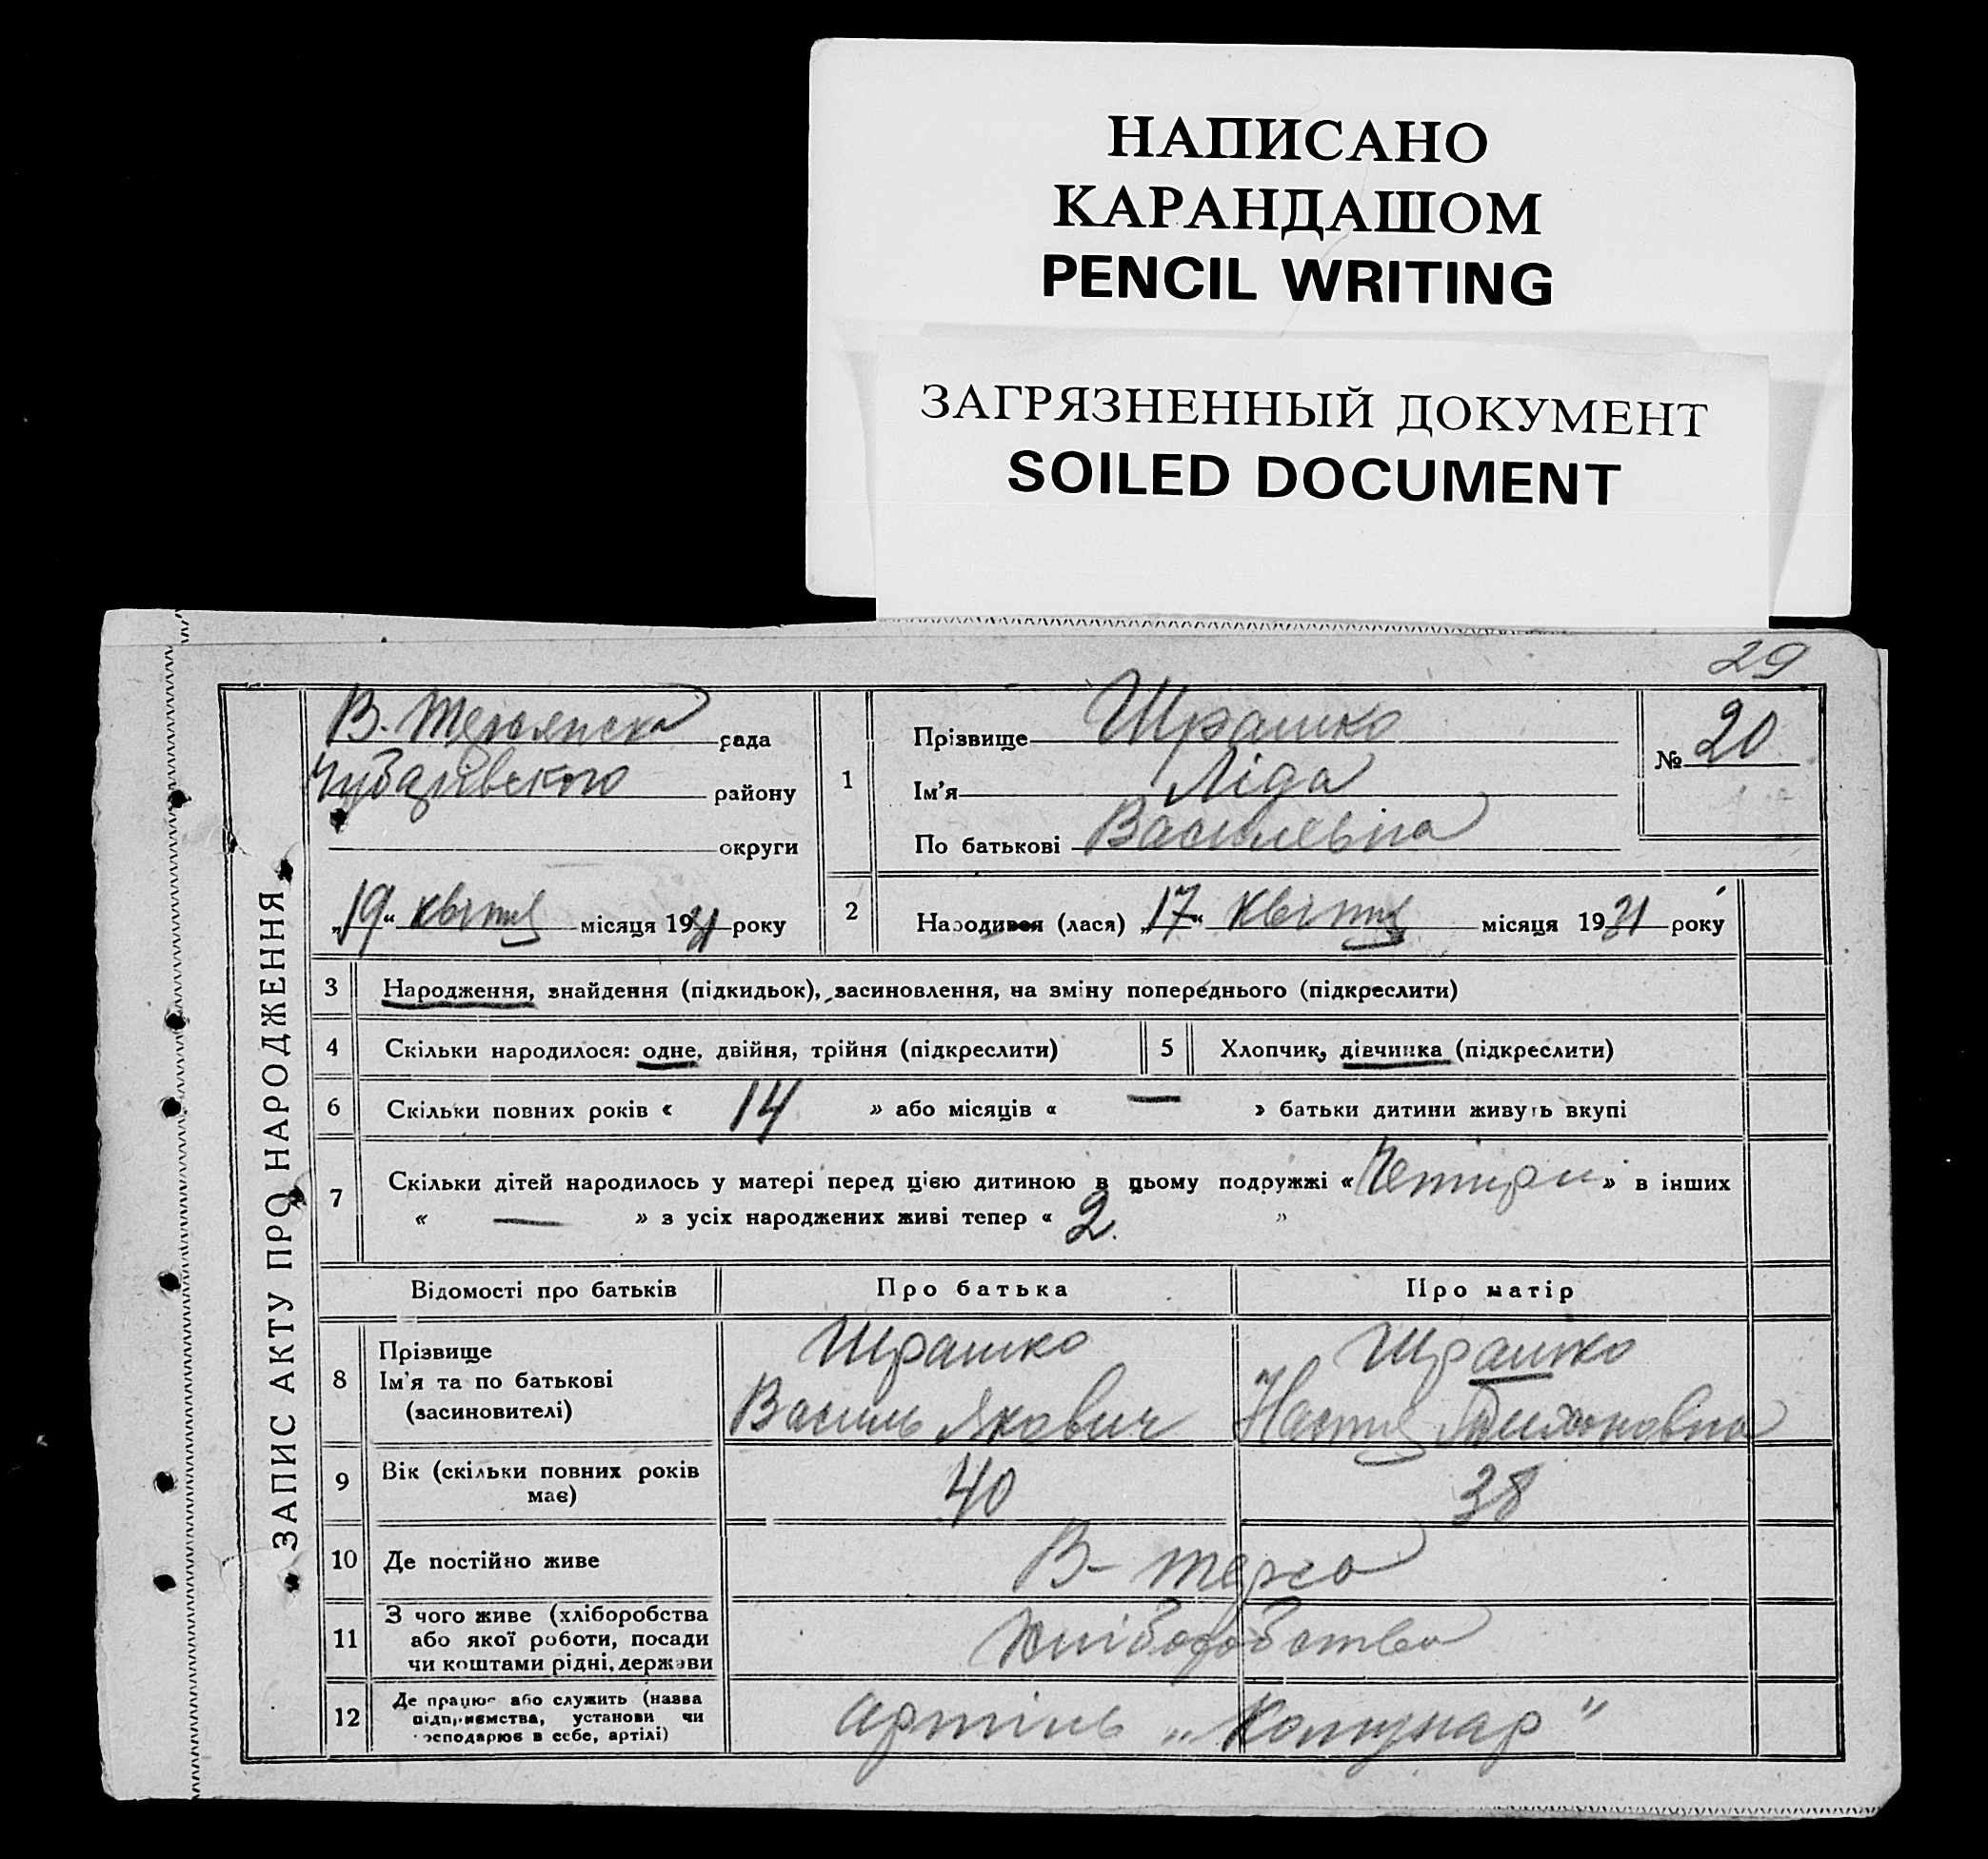 НАПИСАНО
КАРАНДАШОМ
PENCIL WRITING
ЗАГРЯЗНЕННЫЙ ДОКУМЕНТ
SOILED DOCUMENT
29
ЗАПИС АКТУ ПРО НАРОДЖЕННЯ
В. Терсянска рада
Чубарівского району
округи
„19“ квітня місяця 1931 року
1
Прізвище Шрашко
Ім'я Ліда
По батькові Василевна
№ 20
2 Народився (лася) „17“ квітня місяця 1931 року
3 Народження, знайдення (підкидьок), засиновлення, на зміну попереднього (підкреслити)
4 Скільки народилося: одне, двійня, трійня (підкреслити)
5 Хлопчик, дівчинка (підкреслити)
6 Скільки повних років « 14 » або місяців « — » батьки дитини живуть вкупі
7 Скільки дітей народилось у матері перед цією дитиною в цьому подружжі « Четири » в інших
« — » з усіх народжених живі тепер « 2. »
Відомості про батьків Про батька Про матір
8 Прізвище Шрашко Шрашко
Ім'я та по батькові
(засиновителі) Василь Якович Настя
9 Вік (скільки повних років
має) 40 38
10 Де постійно живе В- Терса
11 З чого живе (хліборобства
або якої роботи, посади
чи коштами рідні, держави
Хліборобство
12 Де працює або служить (назва
підприємства, установи чи
господарює в себе, артілі)
артіль „Комунар"